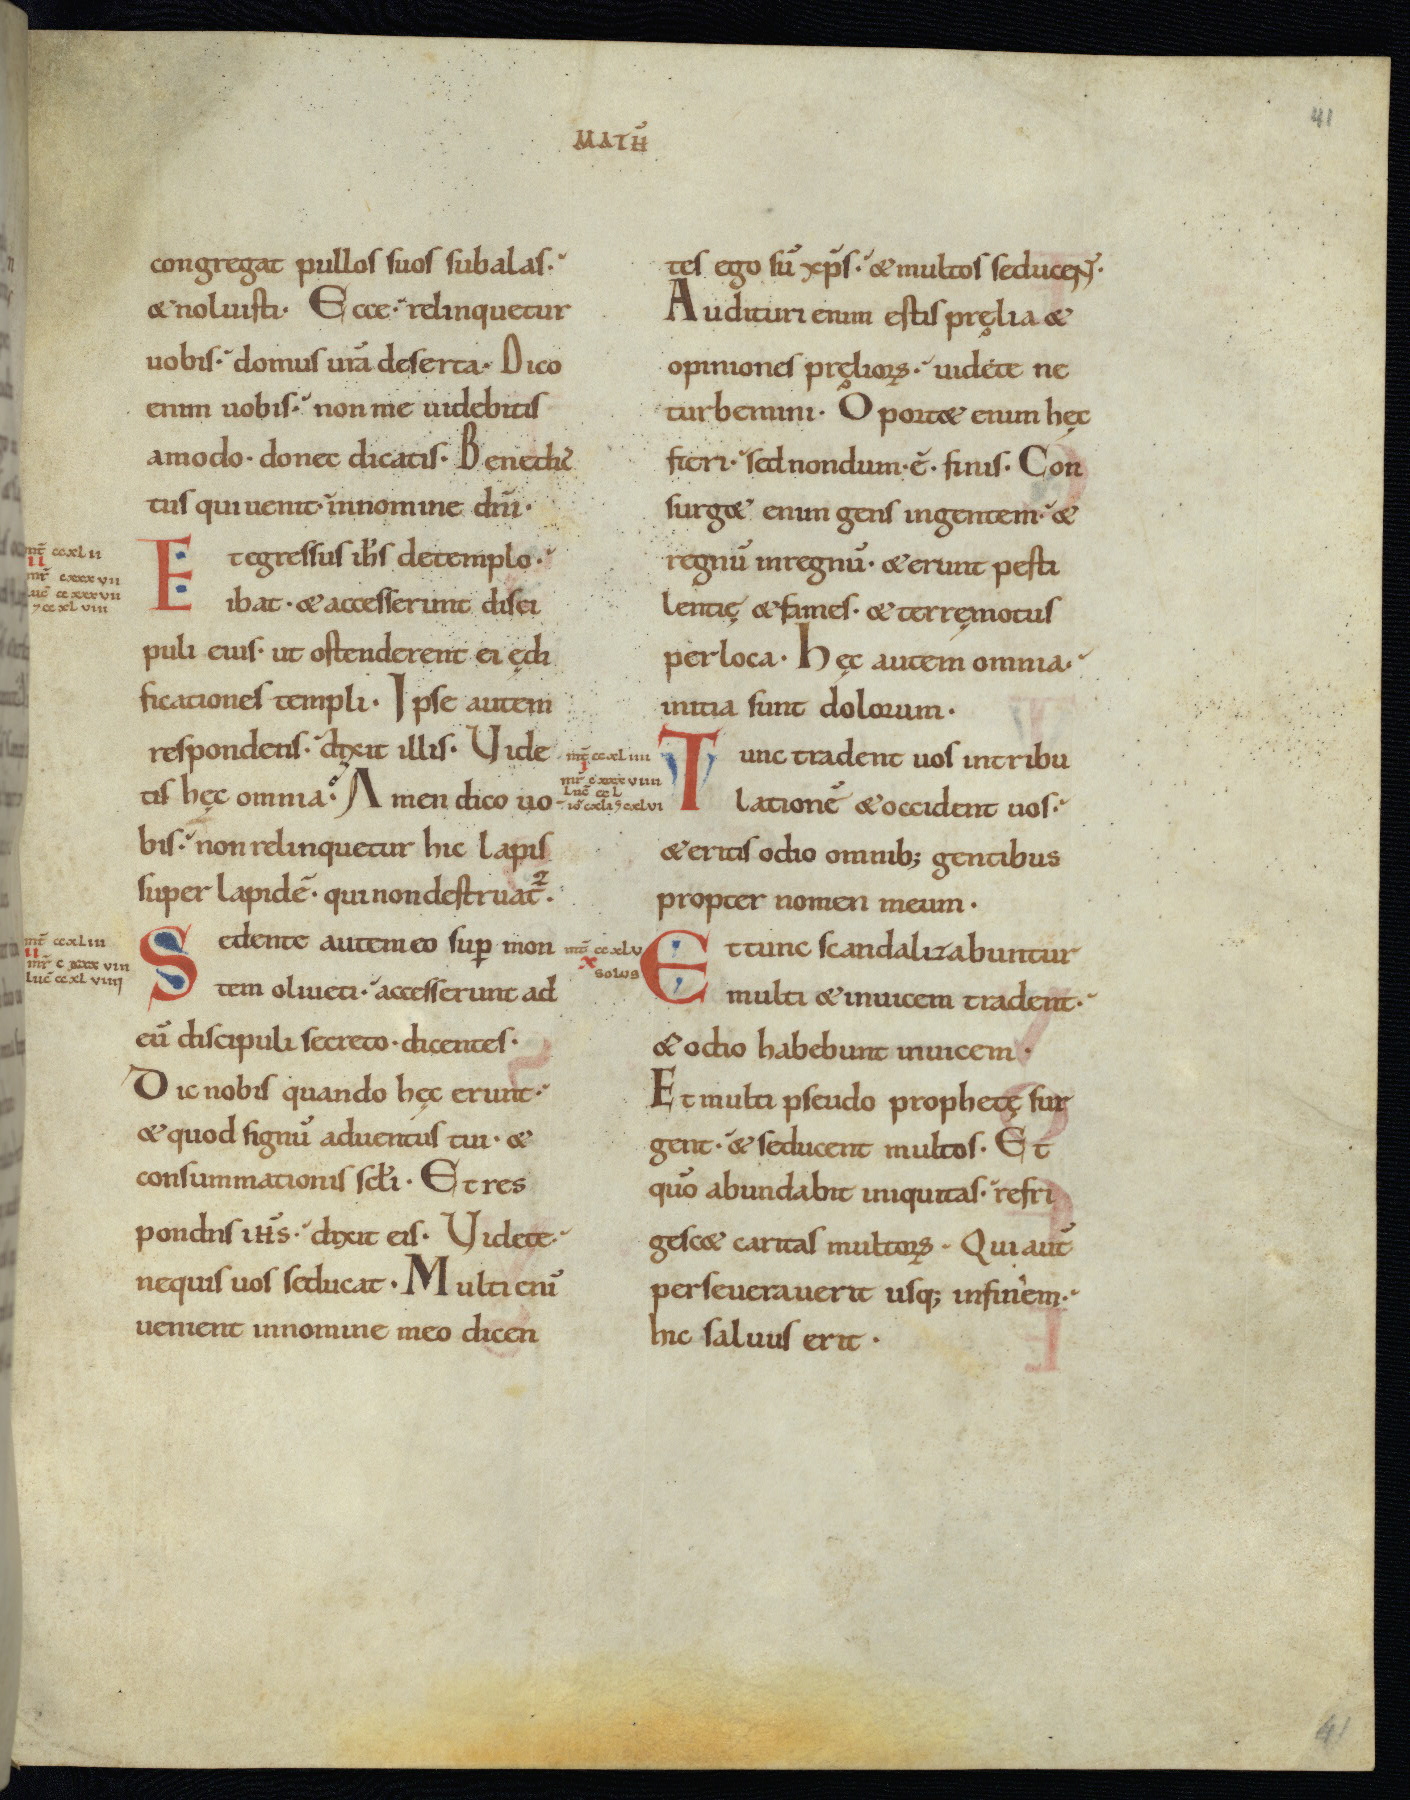 MATH̅
41
congregat pullos suos subalas·
& noluisti· Ecce· relinquetur
uobis· domus ur̅a deserta· Dico
enim uobis· non me uidebitis
amodo· donec dicatis· Benedic
tus qui uenit· innomine dn̅i·
mt̅ ccxlii
ii
mr̅ cxxxvii
luc̅ ccxxxvii
⁊ ccxlviii
Et egressus ih̅s detemplo·
ibat· & accesserunt disci
puli eius· ut ostenderent ei ędi
ficationes templi· Ipse autem
respondens· dixit illis· Uide
tis hęc omnia· Amen dico uo
bis· non relinquetur hic lapis
super lapidē· qui non destruat᷑·
mt̅ ccxliii
ii
mr̅ cxxxviii
luc̅ ccxlviiii
Sedente autem eo sup̲ mon
tem oliueti· accesserunt ad
eū discipuli secreto· dicentes·
Dic nobis quando hęc erunt·
& quod signū aduentus tui· &
consummationis scl̅i· Et res
pondens ih̅s· dixit eis· Uidete·
nequis uos seducat· Multi enī
uenient innomine meo dicen
tes ego sū xp̅s· & multos seducent·
Audituri enim estis pręlia &
opiniones pręlioꝝ· uidete ne
turbemini· Oport& enim hęc
fieri· sed nondum· ē· finis· Con
surg& enim gens ingentem· &
regnū inregnū· & erunt pesti
lentię & fames· & terręmotus
per loca· Hęc autem omnia·
initia sunt dolorum·
mt̅ ccxliiii
i
mr̅ cxxxviiii
luc̅ ccl
io̅ cxli ⁊ cxlvi
Tunc tradent uos intribu
lationē & occident uos·
& eritis odio omnib; gentibus
propter nomen meum·
mt̅ ccxlv
x
solus
Et tunc scandalizabuntur
multi & inuicem tradent·
& odio habebunt inuicem·
Et multi pseudo prophetę sur
gent· & seducent multos· Et
quō abundabit iniquitas· refri
gesc& caritas multoꝝ· Qui aut̅
perseuerauerit usq; infinem·
hic saluus erit·
41